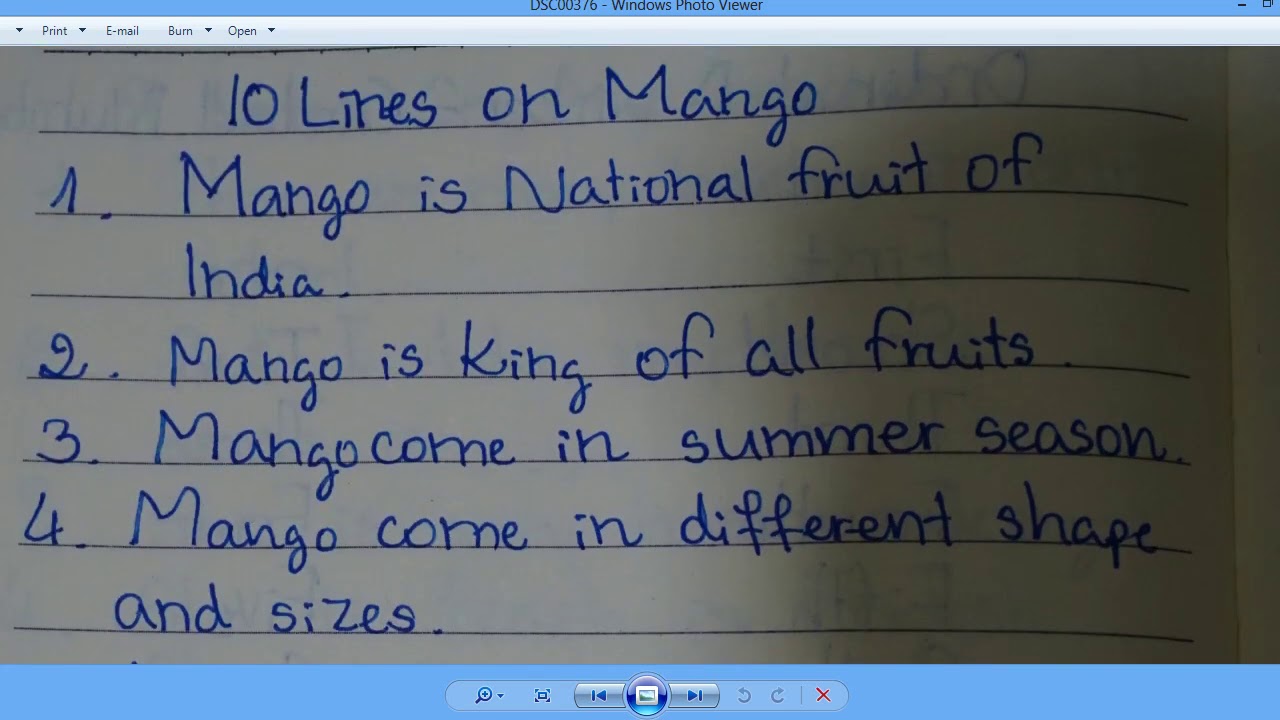 DSC00376 - Windows Photo Viewer
Print E-mail Burn Open
10 Lines on Mango
1. Mango is National fruit of
India.
2. Mango is king of all fruits.
3. Mango come in summer season.
4. Mango come in different shape
and sizes.